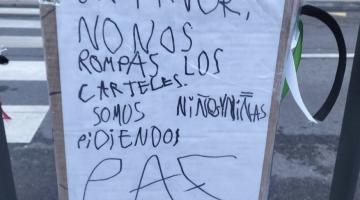 POR FAVOR,
NO NOS
ROMPAS LOS
CARTELES.
SOMOS NIÑOS Y NIÑAS
PIDIENDO
PAZ